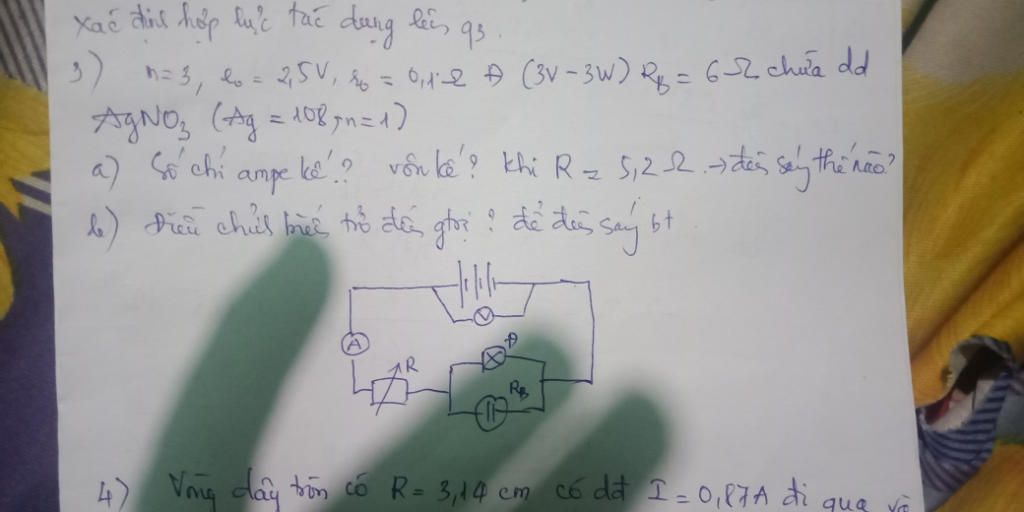 xác định hợp lực tác dụng lên q3.
3) n=3, e₀ = 2,5V, r₀ = 0,1Ω Đ (3V-3W) R_B = 6Ω chứa dd
AgNO₃ (Ag = 108; n=1)
a) Số chỉ ampe kế? vôn kế? khi R = 5,2Ω. → đèn sáng thế nào?
b) Điều chỉnh biến trở đến gtrị? để đèn sáng bt
V
A
Đ
R
R_B
4) Vòng dây tròn có R = 3,14 cm có dđ I = 0,87A đi qua và